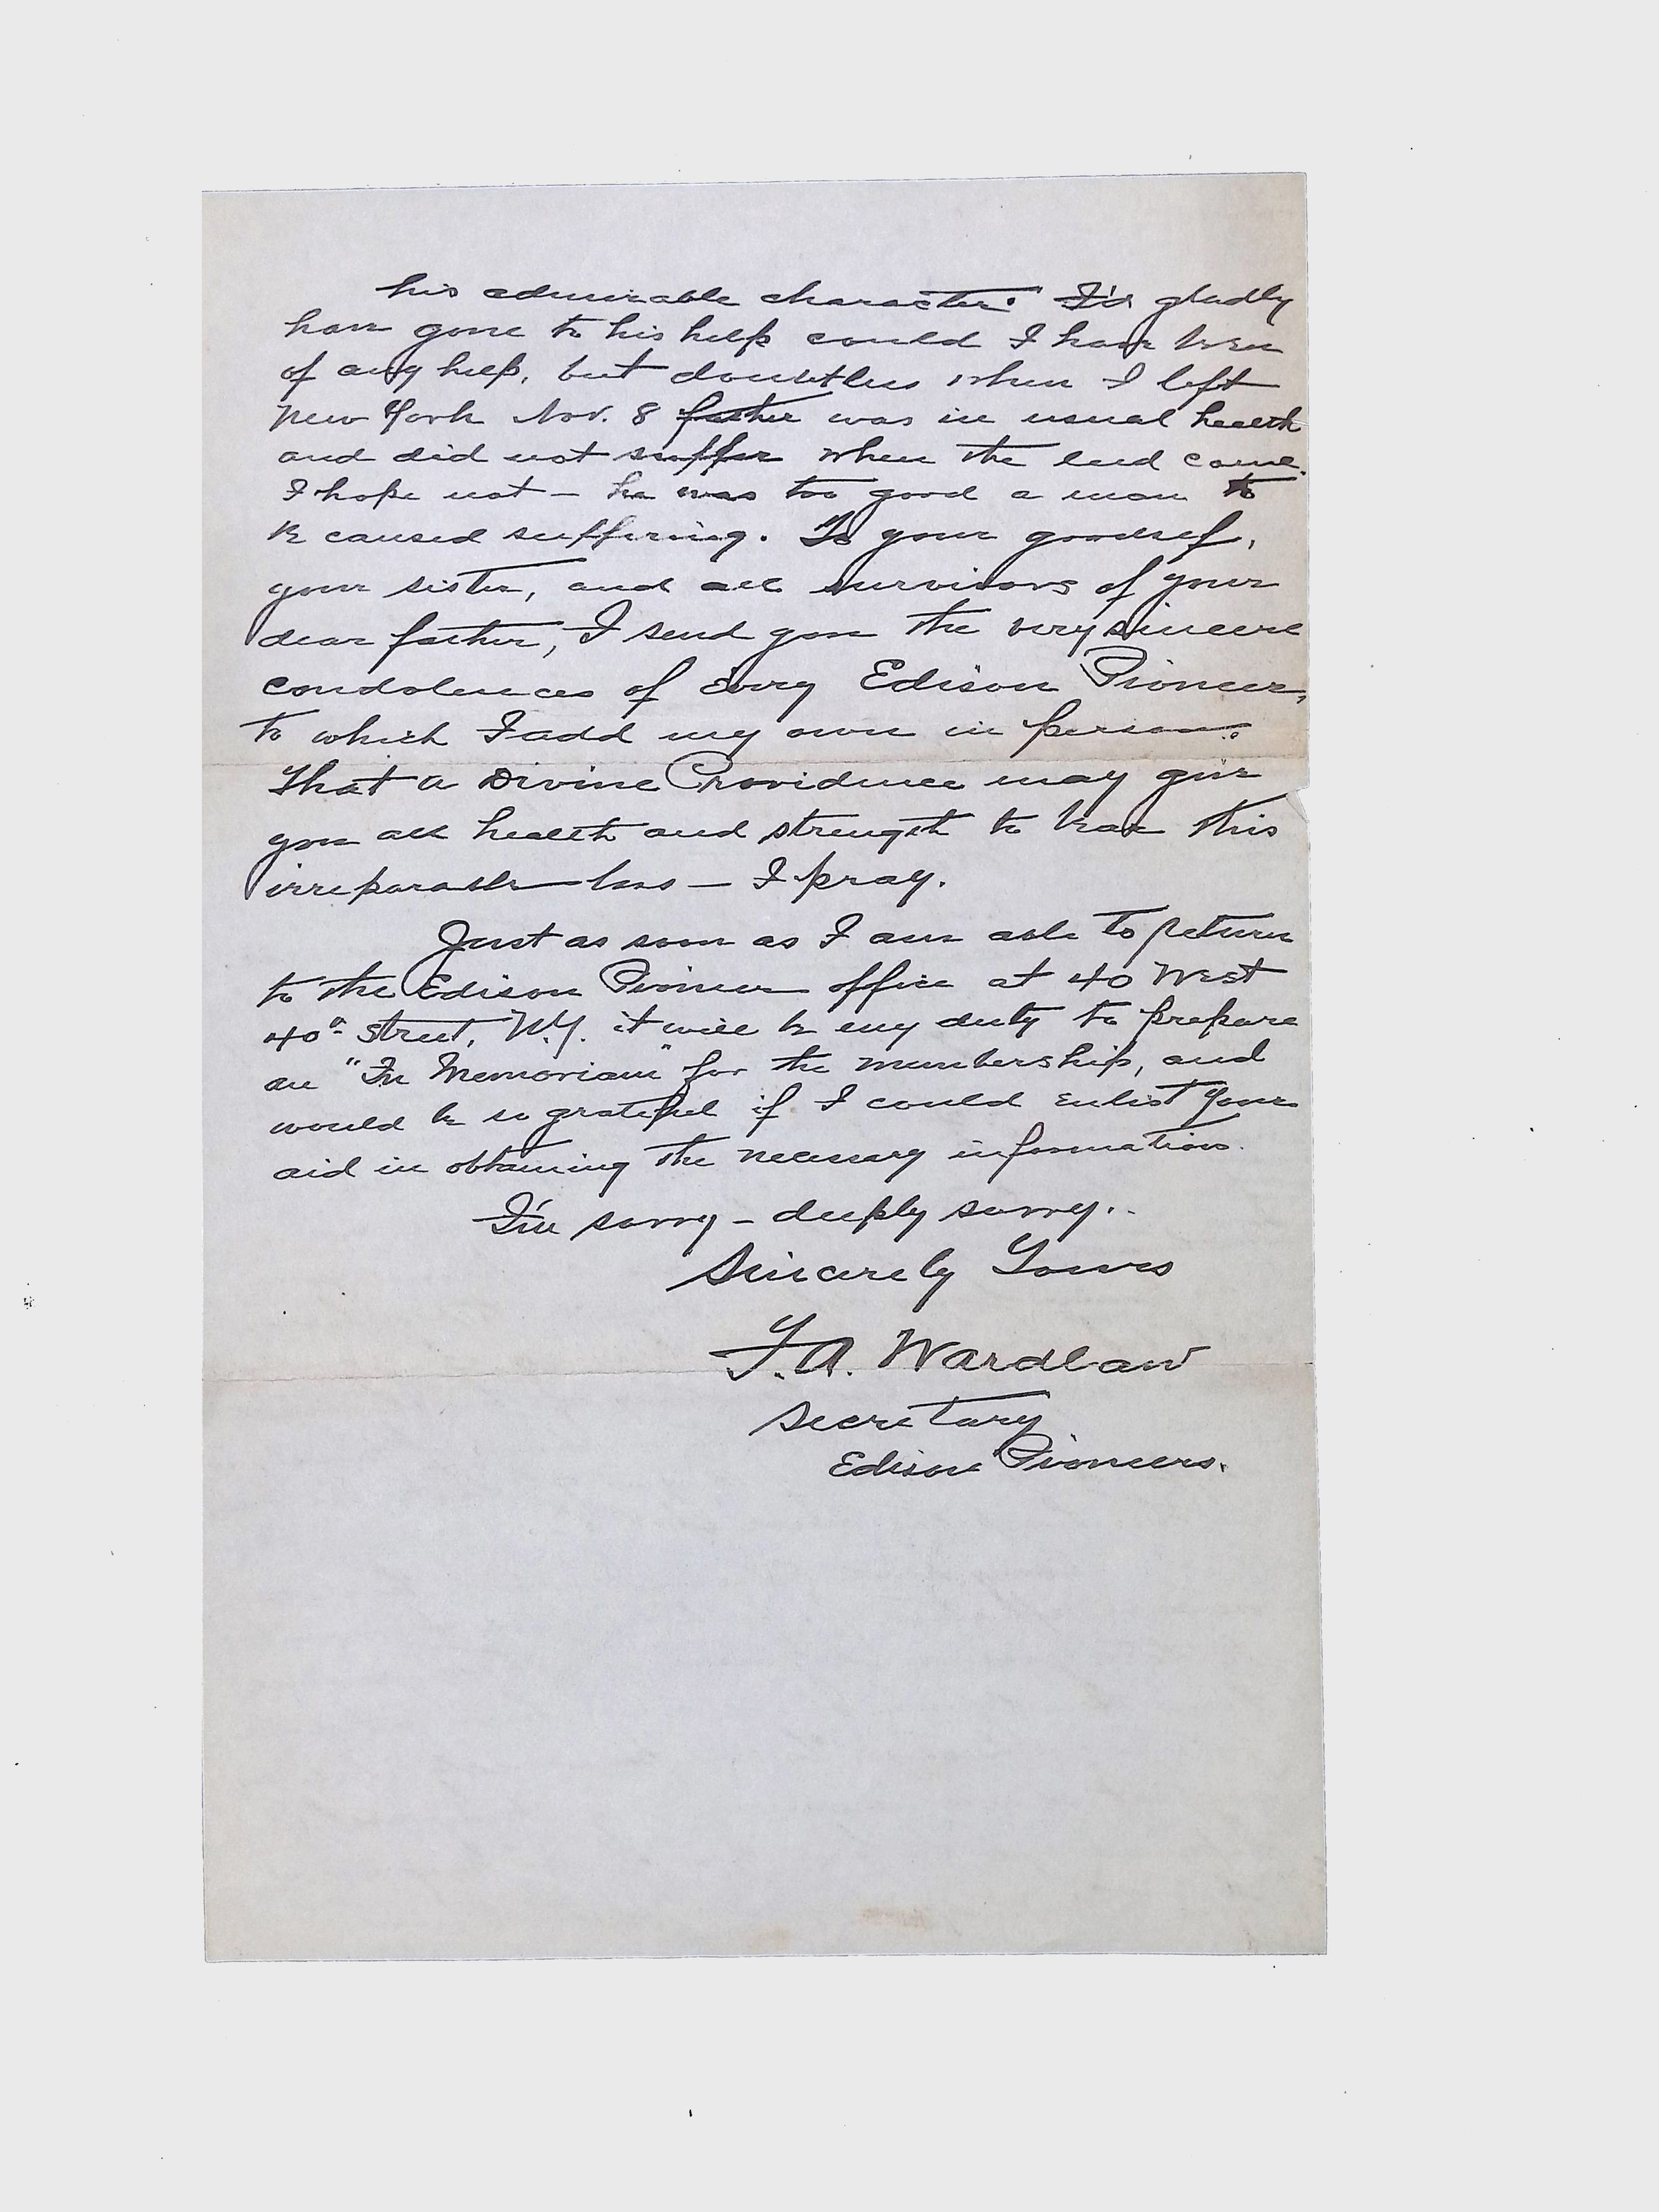 his admirable character. I'd gladly
have gone to his help could I have been
of any help, but doubtless when I left
New York Nov. 8 father was in usual health
and did not suffer when the end came.
I hope not — he was too good a man to
be caused suffering. To your goodself,
your sister, and all survivors of your
dear father, I send you the very sincere
condolences of every Edison Pioneer,
to which I add my own in person.
That a Divine Providence may give
you all health and strength to bear this
irreparable loss — I pray.
Just as soon as I am able to return
to the Edison Pioneer office at 40 West
40th Street, N.Y. it will be my duty to prepare
an "In Memoriam" for the membership, and
would be so grateful if I could enlist your
aid in obtaining the necessary information.
I'm sorry — deeply sorry..
Sincerely Yours
F.A. Wardlaw
Secretary
Edison Pioneers.